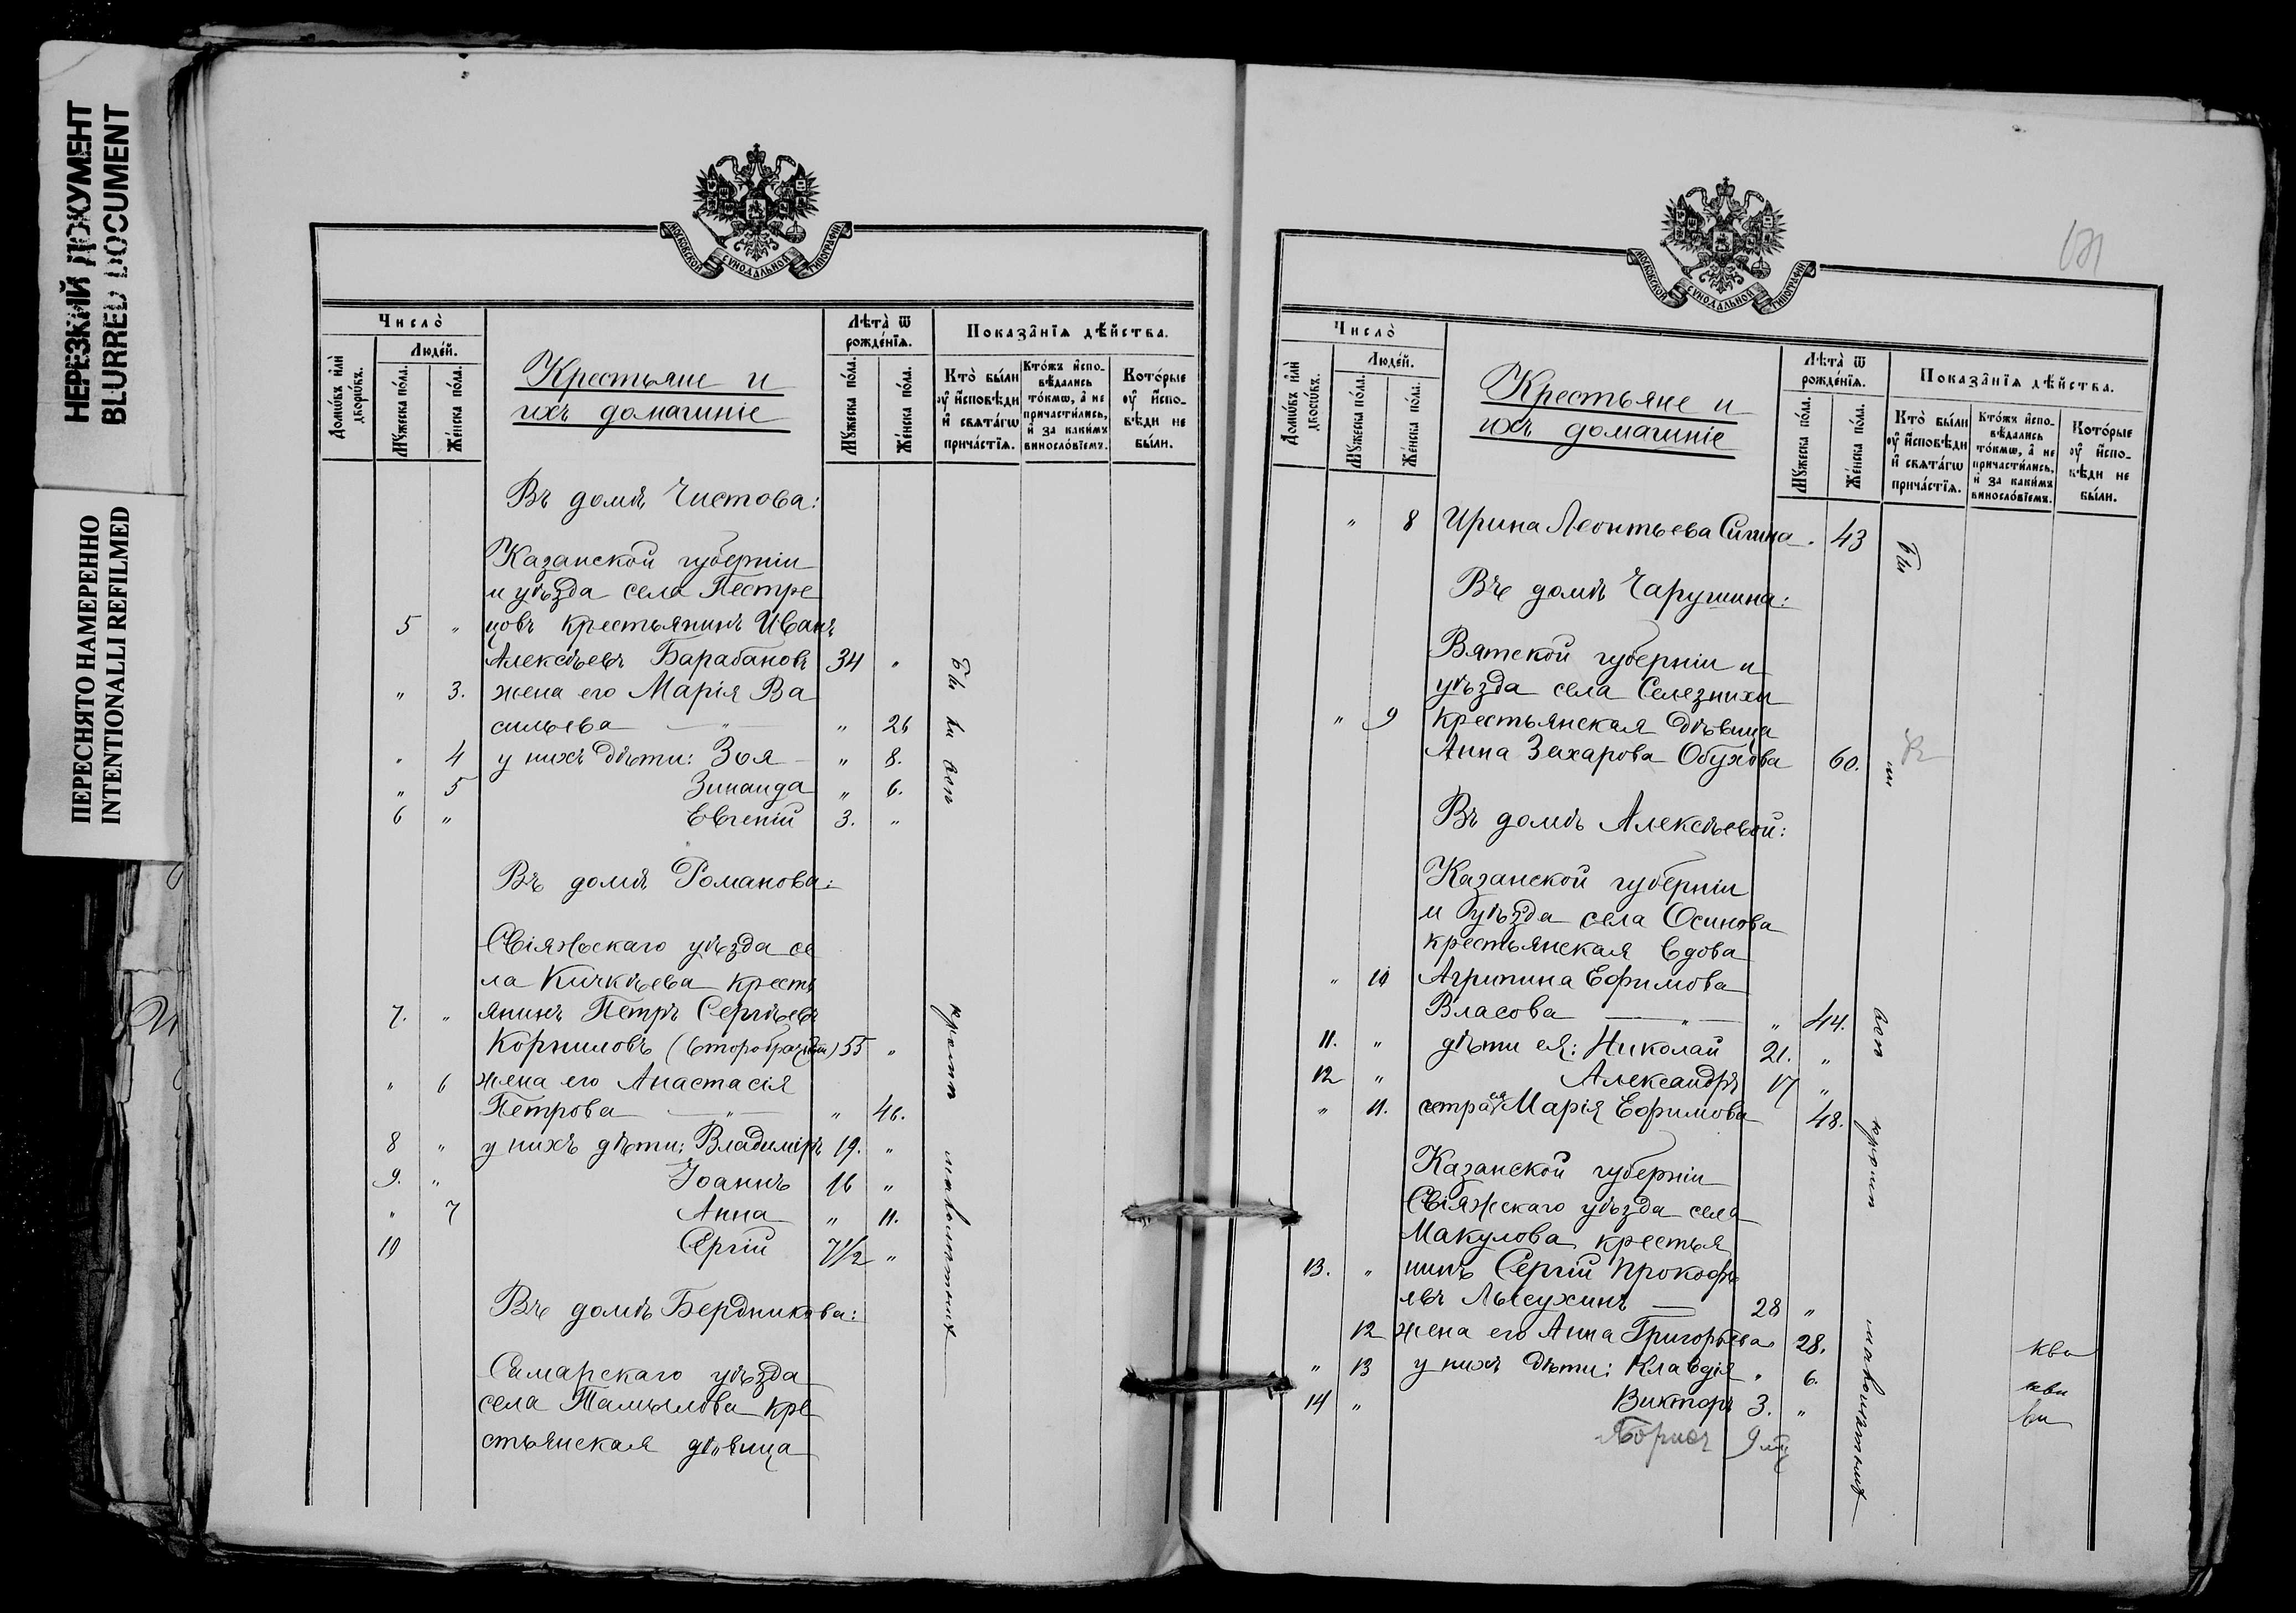 НЕРЕЗКИЙ ДОКУМЕНТ
BLURRED DOCUMENT
ПЕРЕСНЯТО НАМЕРЕННО
INTENTIONALLI REFILMED
МОСКОВСКОЙ СУНОДАЛЬНОЙ ТИПОГРАФІИ
Число̀
Домѡ́въ и҆лѝ дворѡ́въ.
Люде́й.
Мꙋ́жеска по́ла.
Же́нска по́ла.
Крестьяне и
ихъ домашніе
Лѣта̀ ѿ рожде́нїѧ.
Мꙋ́жеска по́ла.
Же́нска по́ла.
Показа̂нїѧ дѣ́йства.
Кто̀ бы́ли ᲂу҆ и҆сповѣди и҆ свѧта́гѡ прича́стїѧ.
Кто́жъ и҆спо-
вѣдались
то́кмѡ, а҆ не
причасти́лись,
и҆ за каки́мъ
виносло́вїемъ.
Кото́рые
ᲂу҆ и҆спо-
вѣди не
бы́ли.
Въ домѣ Чистова:
Казанской губерніи
и уѣзда села Пестре
5 „ цовъ крестьянинъ Иванъ
Алексѣевъ Барабановъ 34 „
„ 3. жена его Марія Ва
сильева — „ — „ 26
„ 4 у нихъ дѣти: Зоя — „ 8.
„ 5 Зинаида „ 6.
6 „ Евгеній 3. „
Въ домѣ Романова:
Свіяжскаго уѣзда се
ла Кичкѣева кресть
7. „ янинъ Петръ Сергѣевъ
Корниловъ 55 „
„ 6 жена его Анастасія
Петрова — „ — „ 46.
8 „ у нихъ дѣти: Владиміръ 19. „
9. „ Іоаннъ 16 „
„ 7 Анна „ 11.
10 Сергій 7 1/2 „
Въ домѣ Бердникова:
Самарскаго уѣзда
села кре
стьянская дѣвица
МОСКОВСКОЙ СУНОДАЛЬНОЙ ТИПОГРАФІИ
Число̀
Домѡ́въ и҆лѝ дворѡ́въ.
Люде́й.
Мꙋ́жеска по́ла.
Же́нска по́ла.
Крестьяне и
ихъ домашніе
Лѣта̀ ѿ рожде́нїѧ.
Мꙋ́жеска по́ла.
Же́нска по́ла.
Показа̂нїѧ дѣ́йства.
Кто̀ бы́ли ᲂу҆ и҆сповѣди и҆ свѧта́гѡ прича́стїѧ.
Кто́жъ и҆спо-
вѣдались
то́кмѡ, а҆ не
причасти́лись,
и҆ за каки́мъ
виносло́вїемъ.
Кото́рые
ᲂу҆ и҆спо-
вѣди не
бы́ли.
„ 8 Ирина Леонтьева 43
Въ домѣ Чарушина:
Вятской губерніи и
уѣзда села Селезнихи
„ 9 крестьянская дѣвица
Анна Захарова Обухова 60.
Въ домѣ Алексѣевой:
Казанской губерніи
и уѣзда села Осинова
крестьянская вдова
„ 10 Агрипина Ефимова
Власова — „ — „ 44.
11. „ дѣти ея: Николай 21. „
12 „ Александръ 17 „
„ 11. сестра ея Марія Ефимова 48.
Казанской губерніи
Свіяжскаго уѣзда села
Макулова крестья
13. „ нинъ Сергій Прокофь
евъ Лысухинъ — 28 „
12 жена его Анна Григорьева 28.
„ 13 у нихъ дѣти: Клавдія „ 6.
14 „ Викторъ 3. „
Борисъ 9 мц